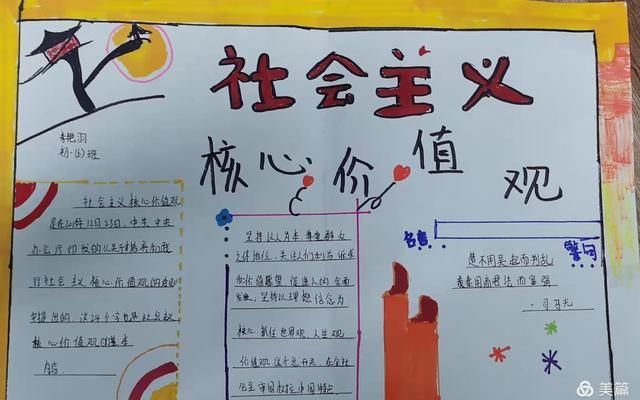 社会主义
核心价值观
李艳羽
初一(6)班
社会主义核心价值观
是在2013年12月23日，中共中央
办公厅印发的《关于培养和践
行社会主义核心价值观的意见》
中提出的，这24个字是社会主义
核心价值观的基本
内容。
坚持以人为本，尊重群众
主体地位，关注人们利益诉求
和价值愿望，促进人的全面
发展；坚持以理想信念为
核心，抓住世界观、人生观、
价值观这个总开关，在全社
会牢固树立中国特色
名言
警句
楚不用吴起而削乱
秦用商君法而富强
—司马光
美篇